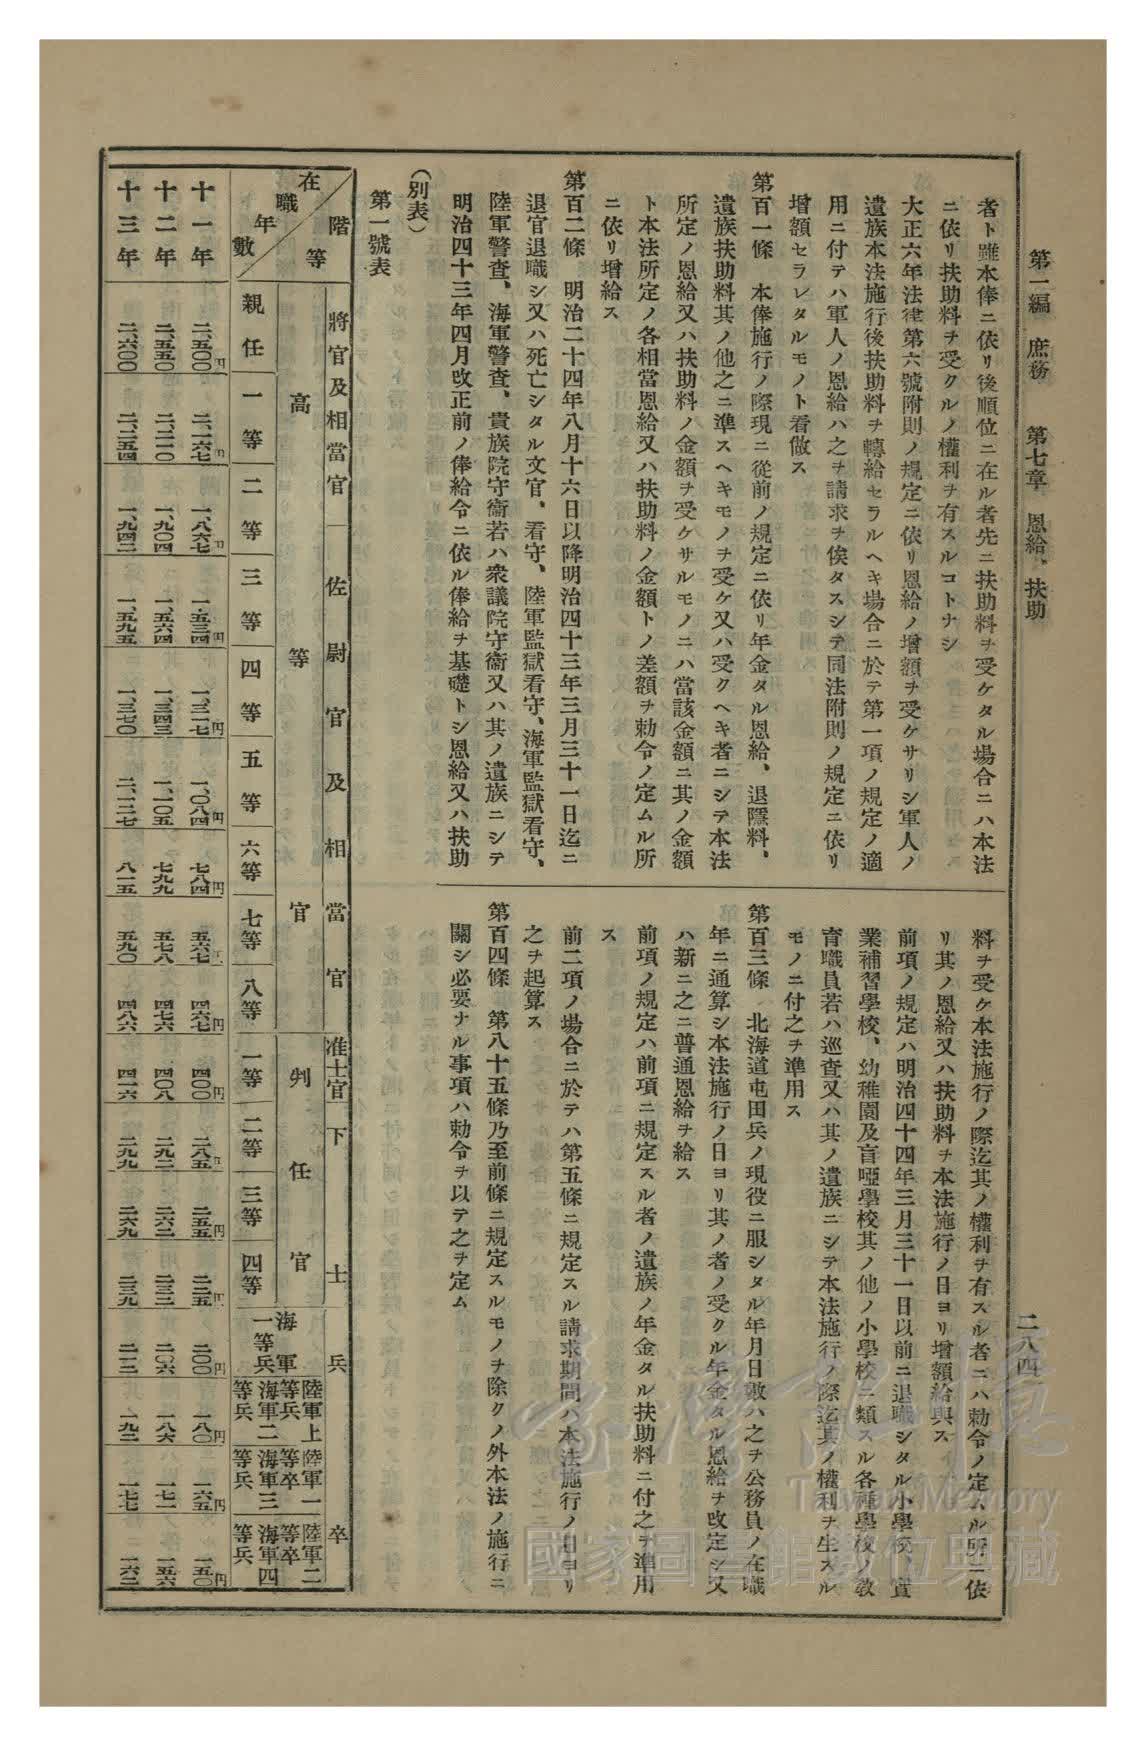 第一編 庶務 第七章 恩給、扶助
二八四
者ト雖本俸ニ依リ後順位ニ在ル者先ニ扶助料ヲ受ケタル場合ニハ本法
ニ依リ扶助料ヲ受クルノ權利ヲ有スルコトナシ
大正六年法律第六號附則ノ規定ニ依リ恩給ノ增額ヲ受ケサリシ軍人ノ
遺族本法施行後扶助料ヲ轉給セラルヘキ場合ニ於テ第一項ノ規定ノ適
用ニ付テハ軍人ノ恩給ハ之ヲ請求ヲ俟タスシテ同法附則ノ規定ニ依リ
增額セラレタルモノト看做ス
第百一條 本俸施行ノ際現ニ從前ノ規定ニ依リ年金タル恩給、退隱料、
遺族扶助料其ノ他之ニ準スヘキモノヲ受ケ又ハ受クヘキ者ニシテ本法
所定ノ恩給又ハ扶助料ノ金額ヲ受ケサルモノニハ當該金額ニ其ノ金額
ト本法所定ノ各相當恩給又ハ扶助料ノ金額トノ差額ヲ勅令ノ定ムル所
ニ依リ增給ス
第百二條 明治二十四年八月十六日以降明治四十三年三月三十一日迄ニ
退官退職シ又ハ死亡シタル文官、看守、陸軍監獄看守、海軍監獄看守、
陸軍警査、海軍警査、貴族院守衞若ハ衆議院守衞又ハ其ノ遺族ニシテ
明治四十三年四月改正前ノ俸給令ニ依ル俸給ヲ基礎トシ恩給又ハ扶助
料ヲ受ケ本法施行ノ際迄其ノ權利ヲ有スル者ニハ勅令ノ定ムル所ニ依
リ其ノ恩給又ハ扶助料ヲ本法施行ノ日ヨリ增額給與ス
前項ノ規定ハ明治四十四年三月三十一日以前ニ退職シタル小學校、實
業補習學校、幼稚園及盲啞學校其ノ他ノ小學校ニ類スル各種學校ノ敎
育職員若ハ巡査又ハ其ノ遺族ニシテ本法施行ノ際迄其ノ權利ヲ生スル
モノニ付之ヲ準用ス
第百三條 北海道屯田兵ノ現役ニ服シタル年月日數ハ之ヲ公務員ノ在職
年ニ通算シ本法施行ノ日ヨリ其ノ者ノ受クル年金タル恩給ヲ改定シ又
ハ新ニ之ニ普通恩給ヲ給ス
前項ノ規定ハ前項ニ規定スル者ノ遺族ノ年金タル扶助料ニ付之ヲ準用
ス
前二項ノ場合ニ於テハ第五條ニ規定スル請求期間ハ本法施行ノ日ヨリ
之ヲ起算ス
第百四條 第八十五條乃至前條ニ規定スルモノヲ除クノ外本法ノ施行ニ
關シ必要ナル事項ハ勅令ヲ以テ之ヲ定ム
(別表)
第一號表
階等 在職年數
將官及相當官 佐尉官及相當官 准士官 下士 兵卒
高等官 判任官
親任 一等 二等 三等 四等 五等 六等 七等 八等 一等 二等 三等 四等 海軍一等兵 陸軍上等兵海軍二等兵 陸軍一等卒海軍三等兵 陸軍二等卒海軍四等兵
十一年 二、五〇〇円 二、一六七円 一、八六七円 一、五三四円 一、三一七円 一、〇八四円 七八四円 五六七円 四六七円 四〇〇円 二八五円 二五五円 二二五円 二〇〇円 一八〇円 一六五円 一五〇円
十二年 二、五五〇 二、二一〇 一、九〇四 一、五六四 一、三四三 一、一〇五 七九九 五七八 四七六 四〇八 二九二 二六二 二三二 二〇六 一八六 一七一 一五六
十三年 二、六〇〇 二、二五四 一、九四二 一、五九五 一、三七〇 二、一二七 八一五 五九〇 四八六 四一六 二九九 二六九 二三九 二一二 一九二 一七七 一六二
臺灣記憶
Taiwan Memory
國家圖書館數位典藏